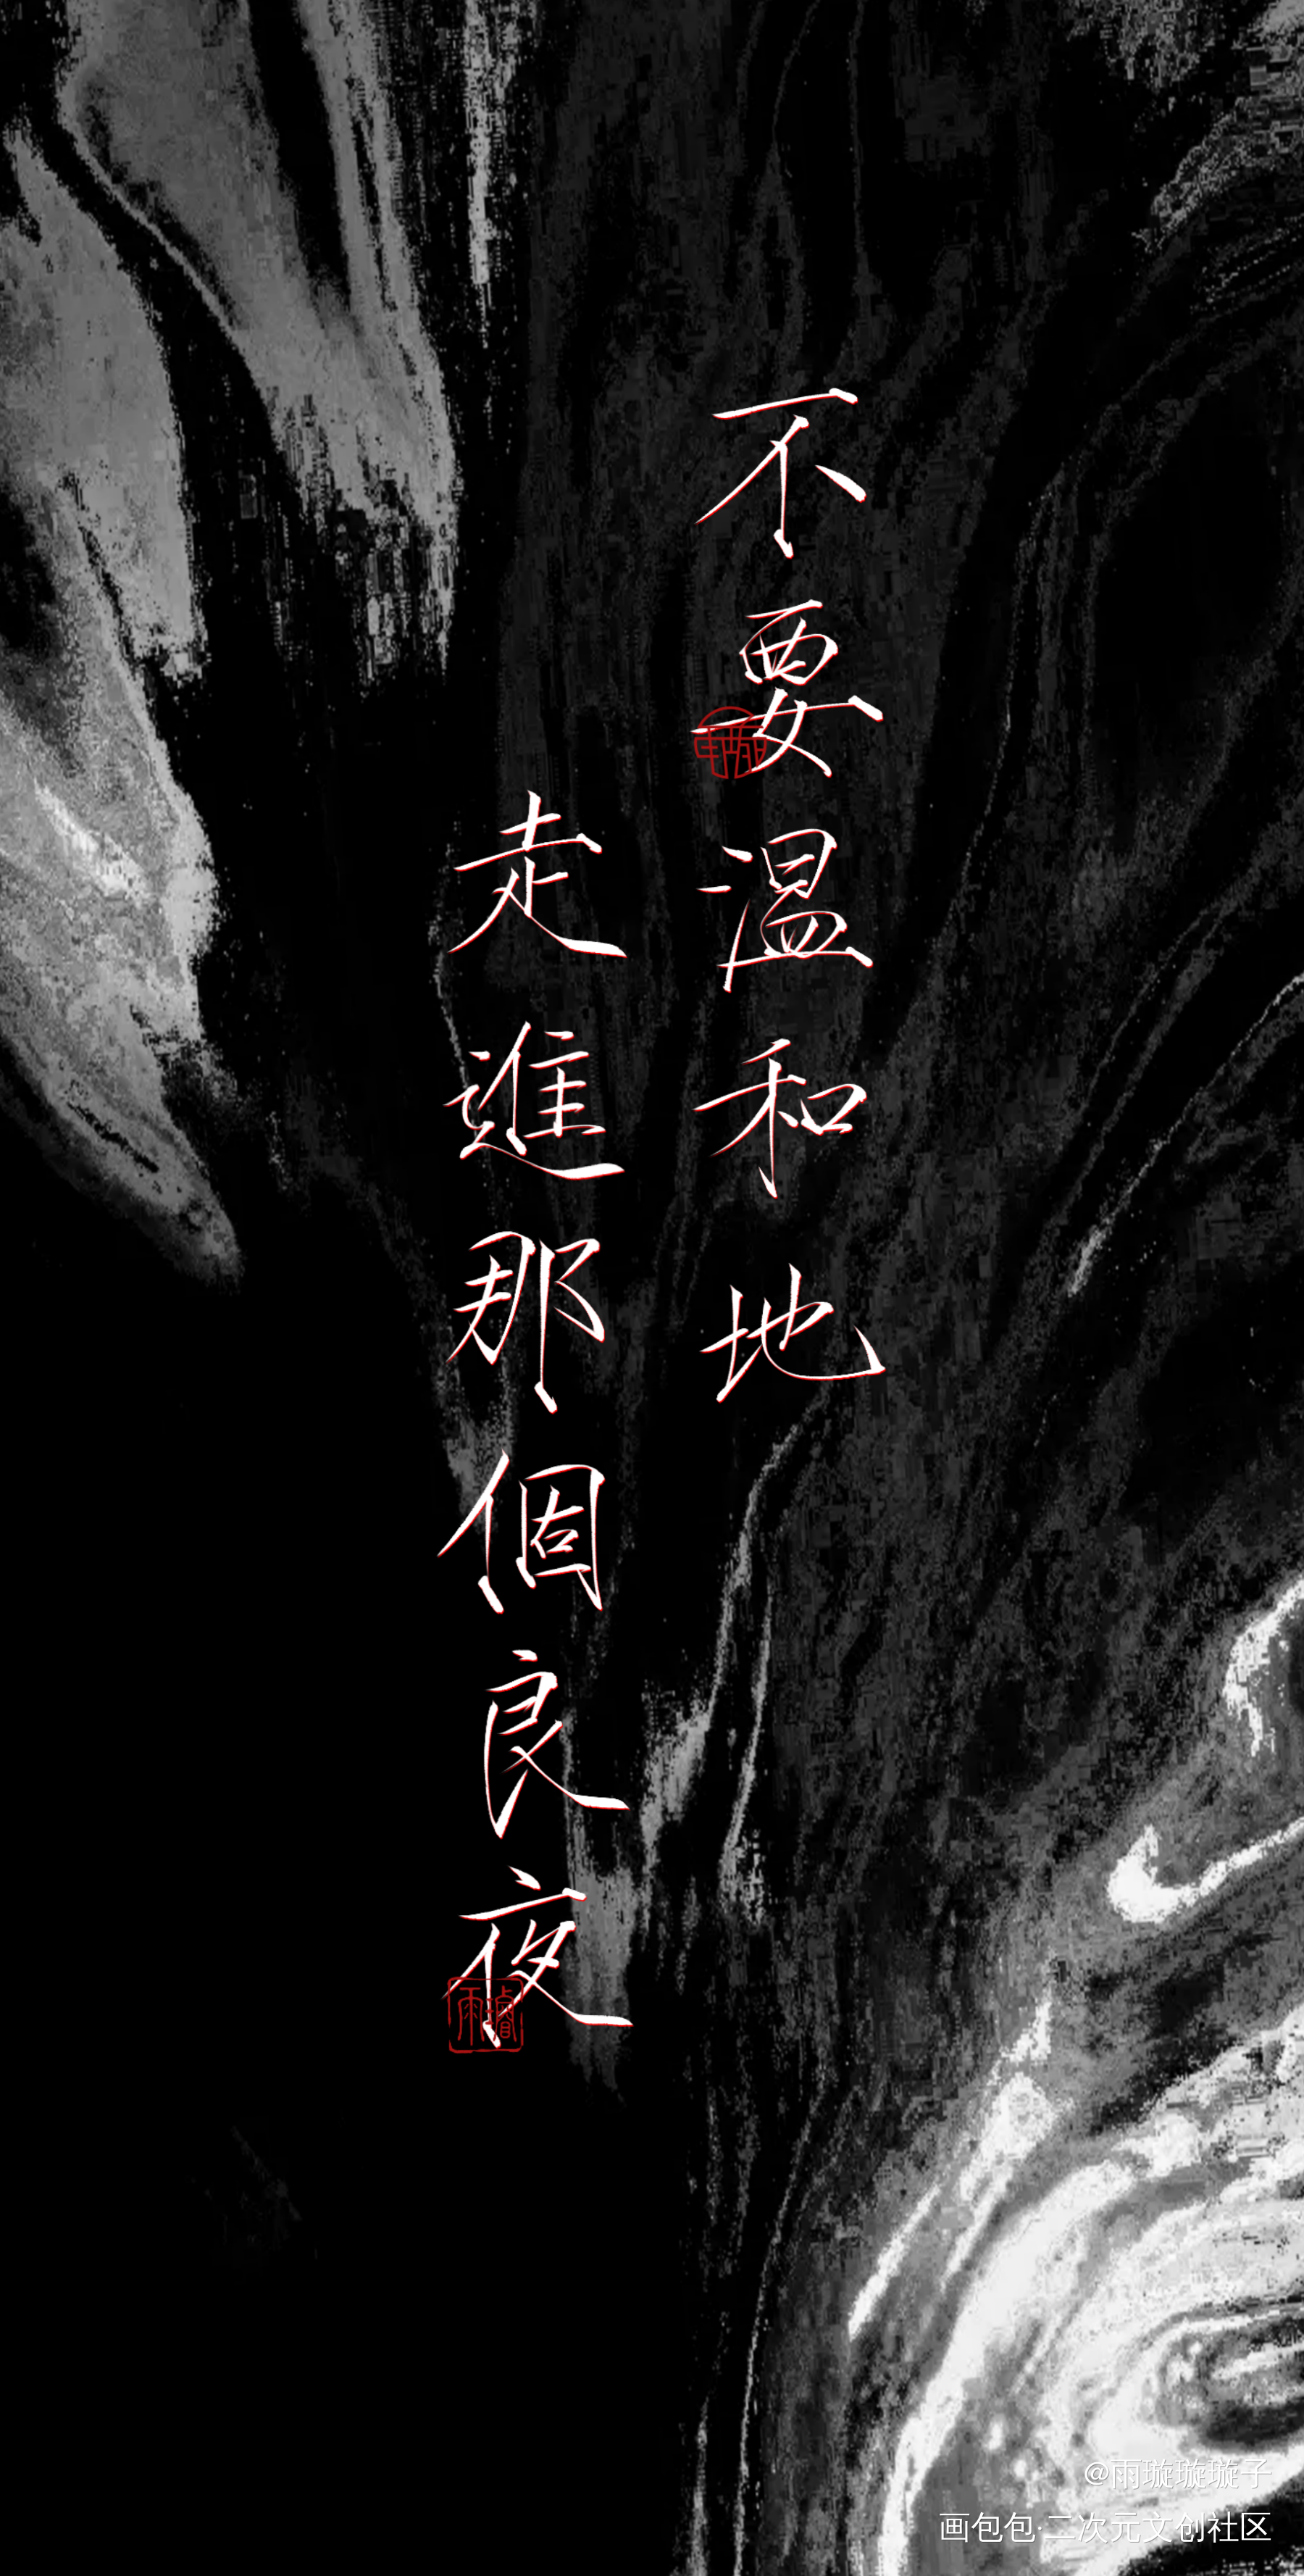 不要温和地
走進那個良夜
雨璇
@雨璇璇璇子
画包包·二次元文创社区